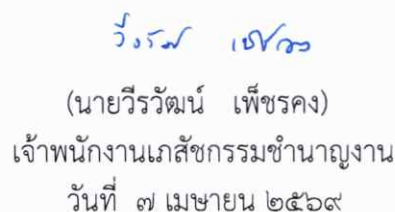 (นายวีรวัฒน์ เพ็ชรคง)
เจ้าพนักงานเภสัชกรรมชำนาญงาน
วันที่ ๗ เมษายน ๒๕๖๙